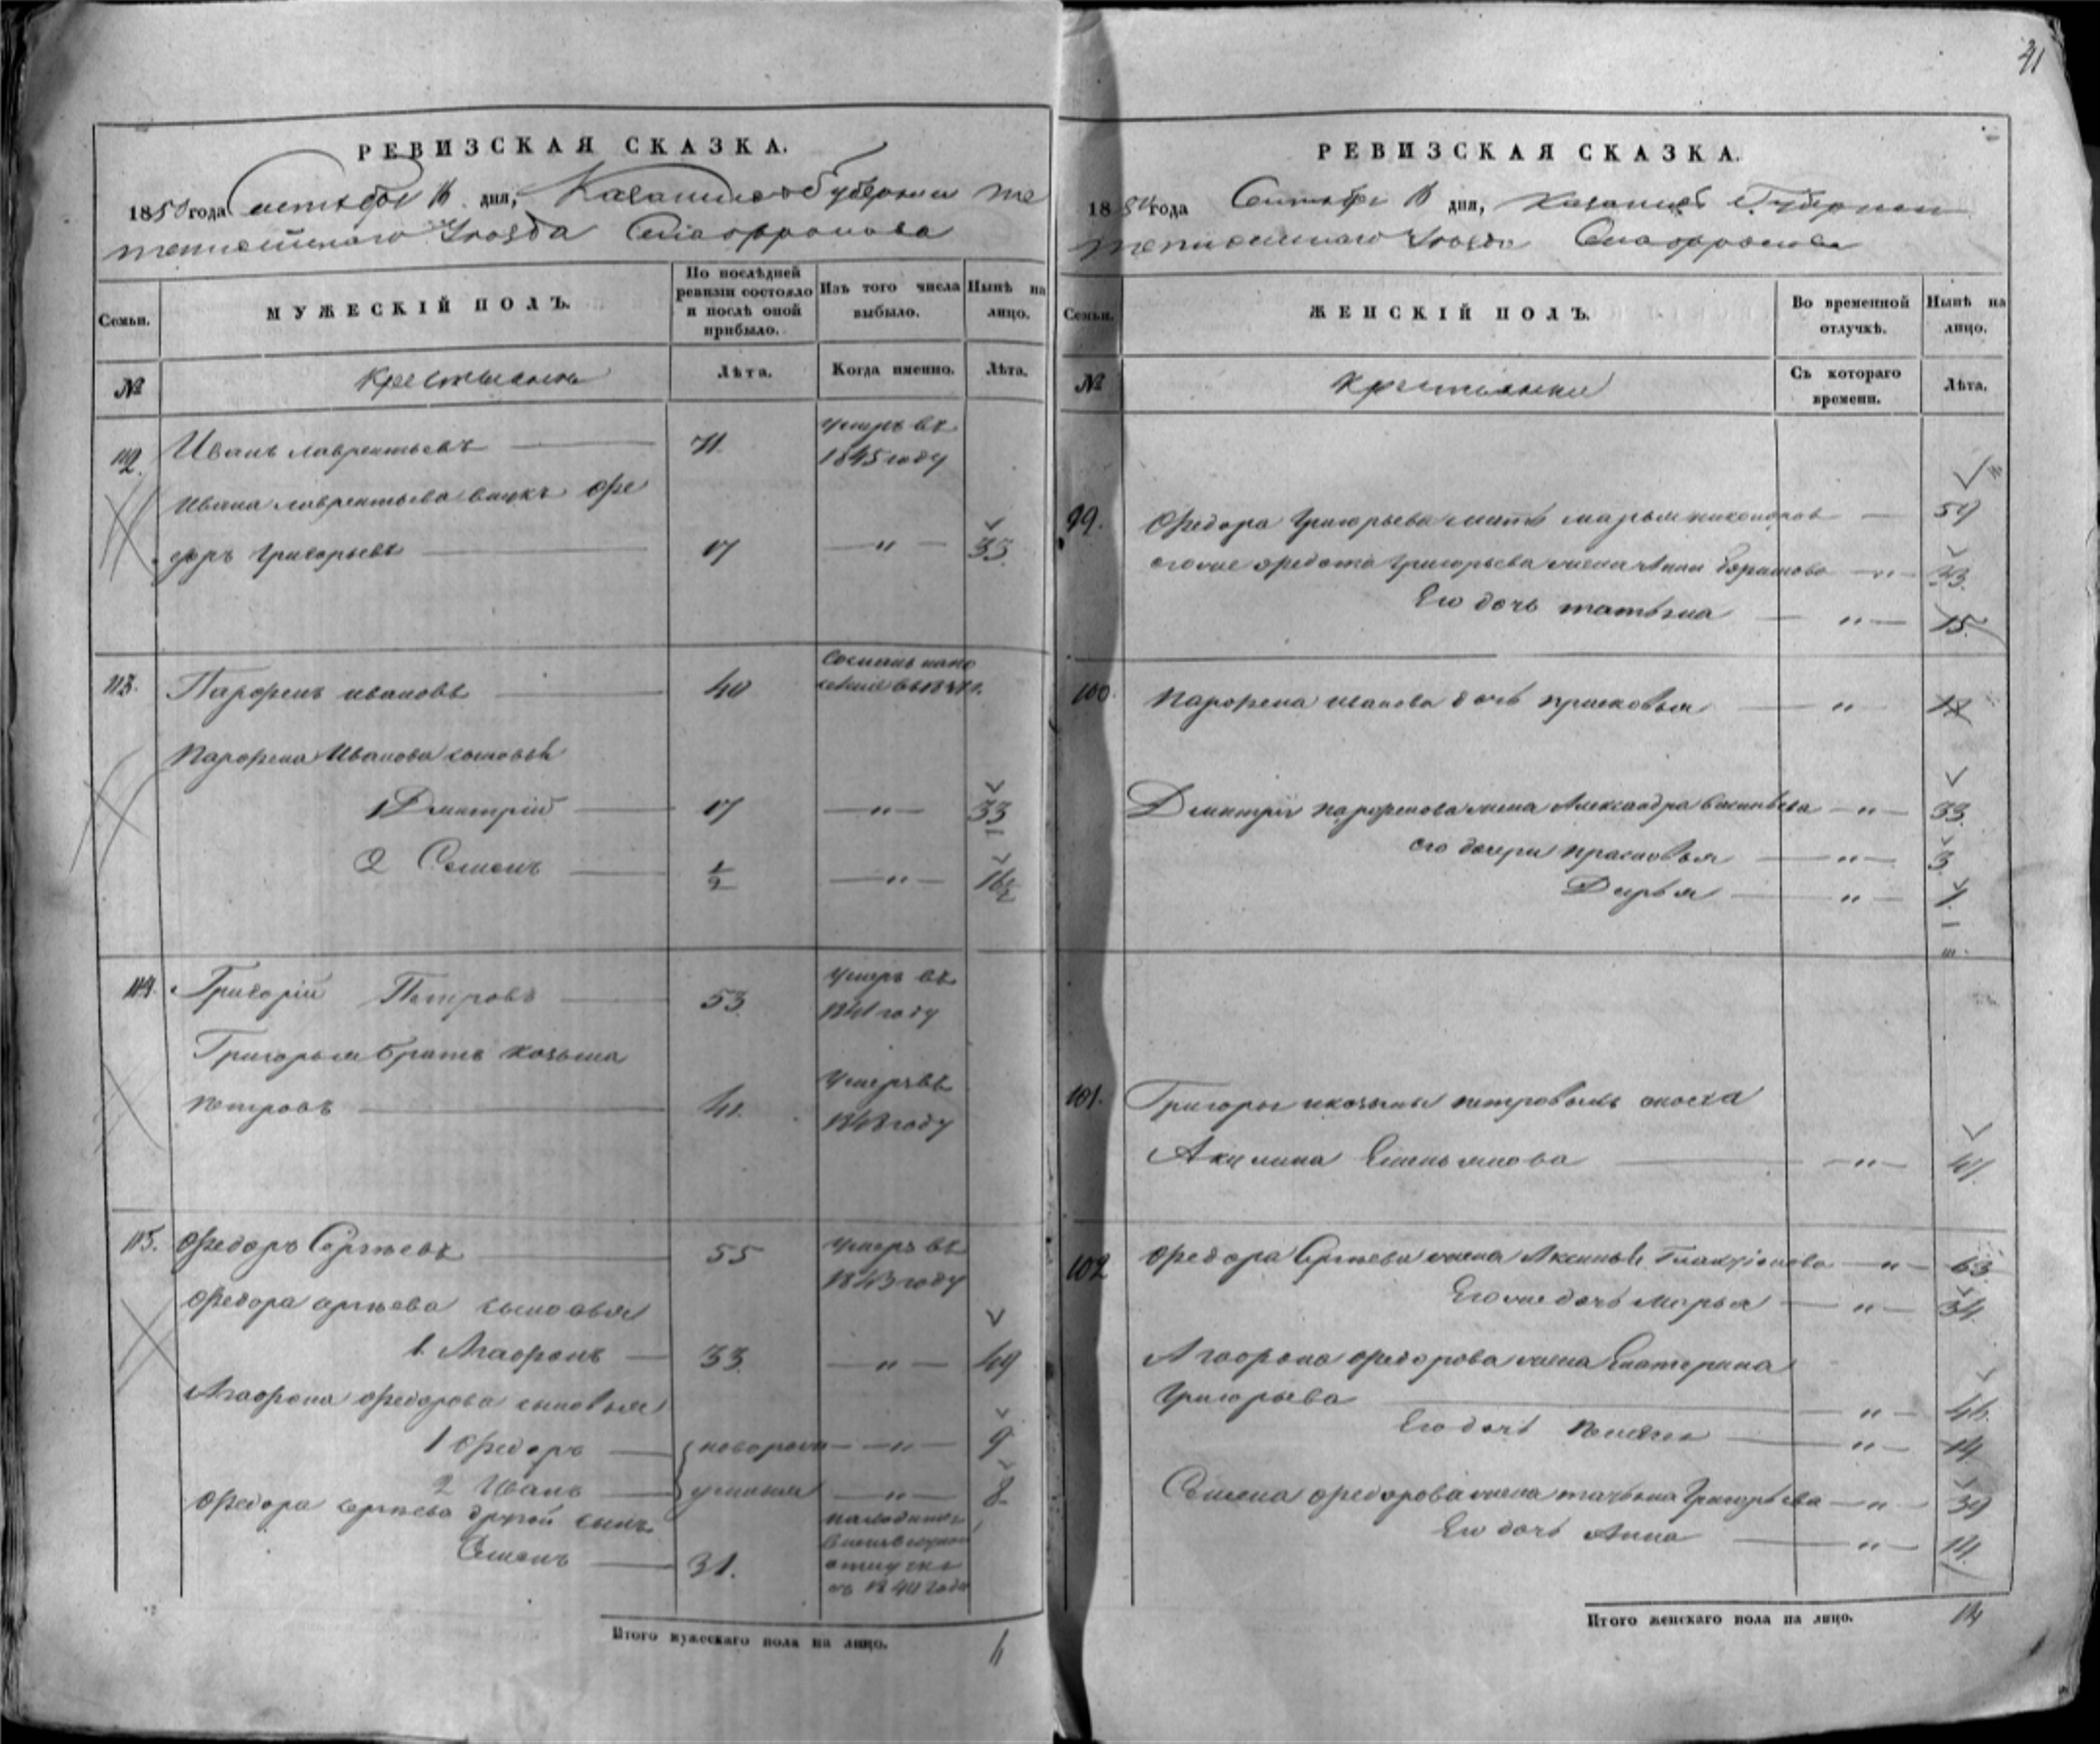 РЕВИЗСКАЯ СКАЗКА.
1850 года октября дня, Казанской Губернии Те
тюшскаго Уезда Села
Семьи.
МУЖЕСКІЙ ПОЛЪ.
По послѣдней ревизіи состояло и послѣ оной прибыло.
Изъ того числа выбыло.
Нынѣ на лицо.
№
Крестьяне
Лѣта.
Когда именно.
Лѣта.
112. Иванъ Лаврентьевъ 71. умеръ въ 1845 году
Ивана Лаврентьева внукъ Фе
доръ Григорьевъ 17 — " — 33.
113. Парфенъ Ивановъ 40
Парфена Иванова сыновья
1 Дмитрій 17 — " — 33
2 Семенъ ½ — " — 16½
114. Григорій Петровъ 53. умеръ въ 1841 году
Григорья братъ Козьма
Петровъ 41. умеръ въ 1848 году
115. Федоръ Сергѣевъ 55 умеръ въ 1843 году
Федора Сергѣева сыновья
1. Агафонъ 33. — " — 49
Агафона Федорова сыновья
1 Федоръ — " — 9
2 Иванъ — " — 8.
Федора Сергѣева другой сынъ
Семенъ 31.
Итого мужескаго пола на лицо. 6
41
РЕВИЗСКАЯ СКАЗКА.
1850 года дня, Казанской Губернии
Тетюшскаго Уезда Села
Семьи.
ЖЕНСКІЙ ПОЛЪ.
Во временной отлучкѣ.
Нынѣ на лицо.
№
Крестьянки
Съ котораго времени.
Лѣта.
99. Федора Григорьева мать Марья — 54
Федота Григорьева жена Анна — " — 33.
Его дочь Татьяна — " — 15.
100. Парфена Иванова дочь Прасковья — "
Дмитрія Парфенова жена Александра Васильева — " — 33.
его дочери Прасковья — " — 3
Дарья — " — 1
101. Григорья и Козьмы Петровыхъ сноха
Акулина Емельянова — " — 41.
102 Федора Сергѣева жена Аксинья Галактіонова — " — 63.
Его же дочь Марья — " — 34.
Агафона Федорова жена Екатерина
Григорьева — " — 46.
Его дочь — " — 14
Семена Федорова жена Татьяна Григорьева — " — 39
Его дочь Анна — " — 14.
Итого женскаго пола на лицо. 14